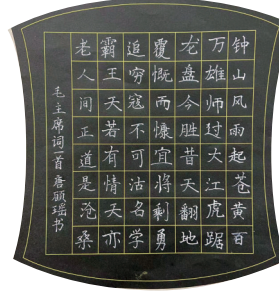 钟山风雨起苍黄百
万雄师过大江虎踞
龙盘今胜昔天翻地
覆慨而慷宜将剩勇
追穷寇不可沽名学
霸王天若有情天亦
老人间正道是沧桑
毛主席词一首唐瑶书